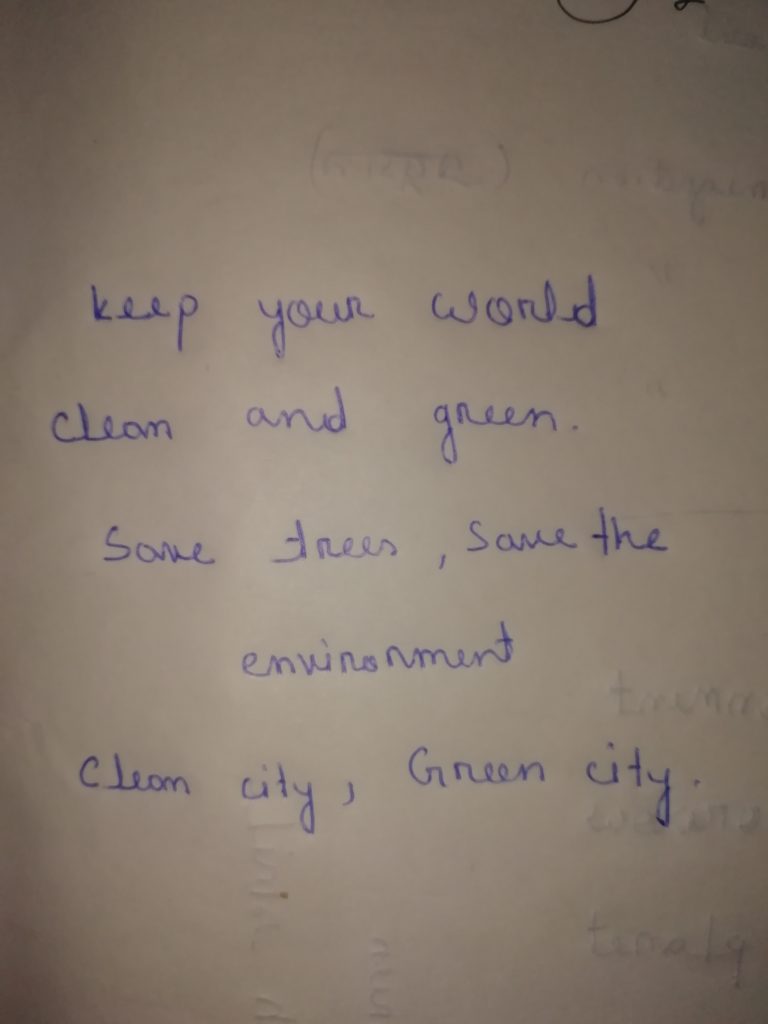 keep your world
clean and green.
Save trees, Save the
environment
Clean city, Green city.